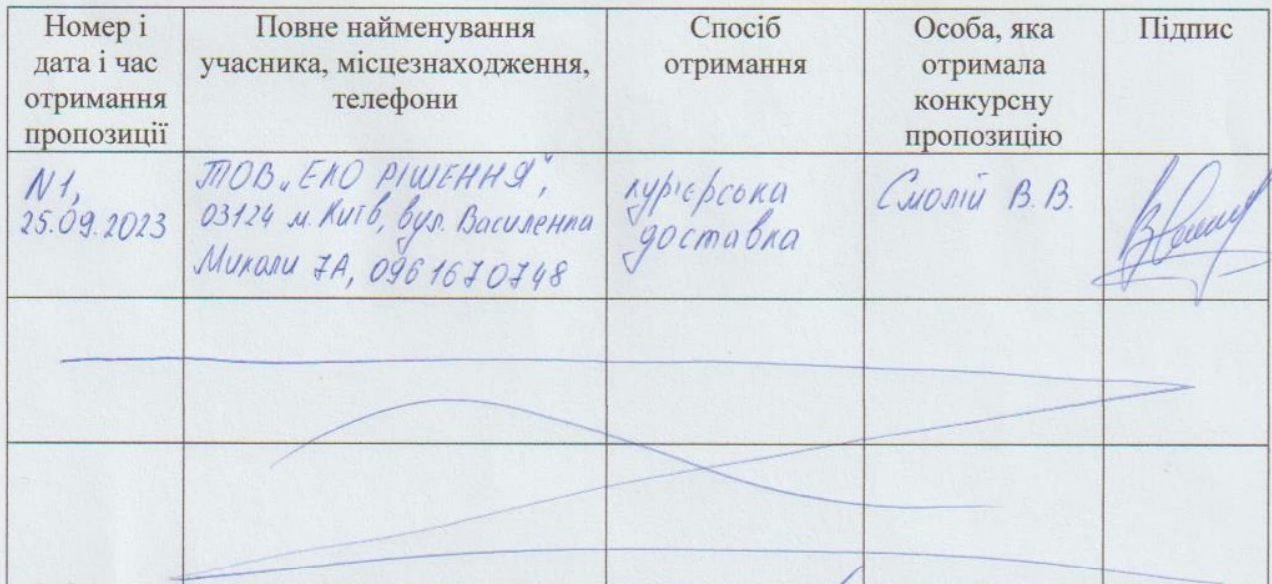 Номер і
дата і час
отримання
пропозиції
Повне найменування
учасника, місцезнаходження,
телефони
Спосіб
отримання
Особа, яка
отримала
конкурсну
пропозицію
Підпис
N1,
25.09.2023
ТОВ „ЕКО РІШЕННЯ",
03124 м. Київ, вул. Василенка
Миколи 7А, 096 167 07 48
кур'єрська
доставка
Смолій В. В.